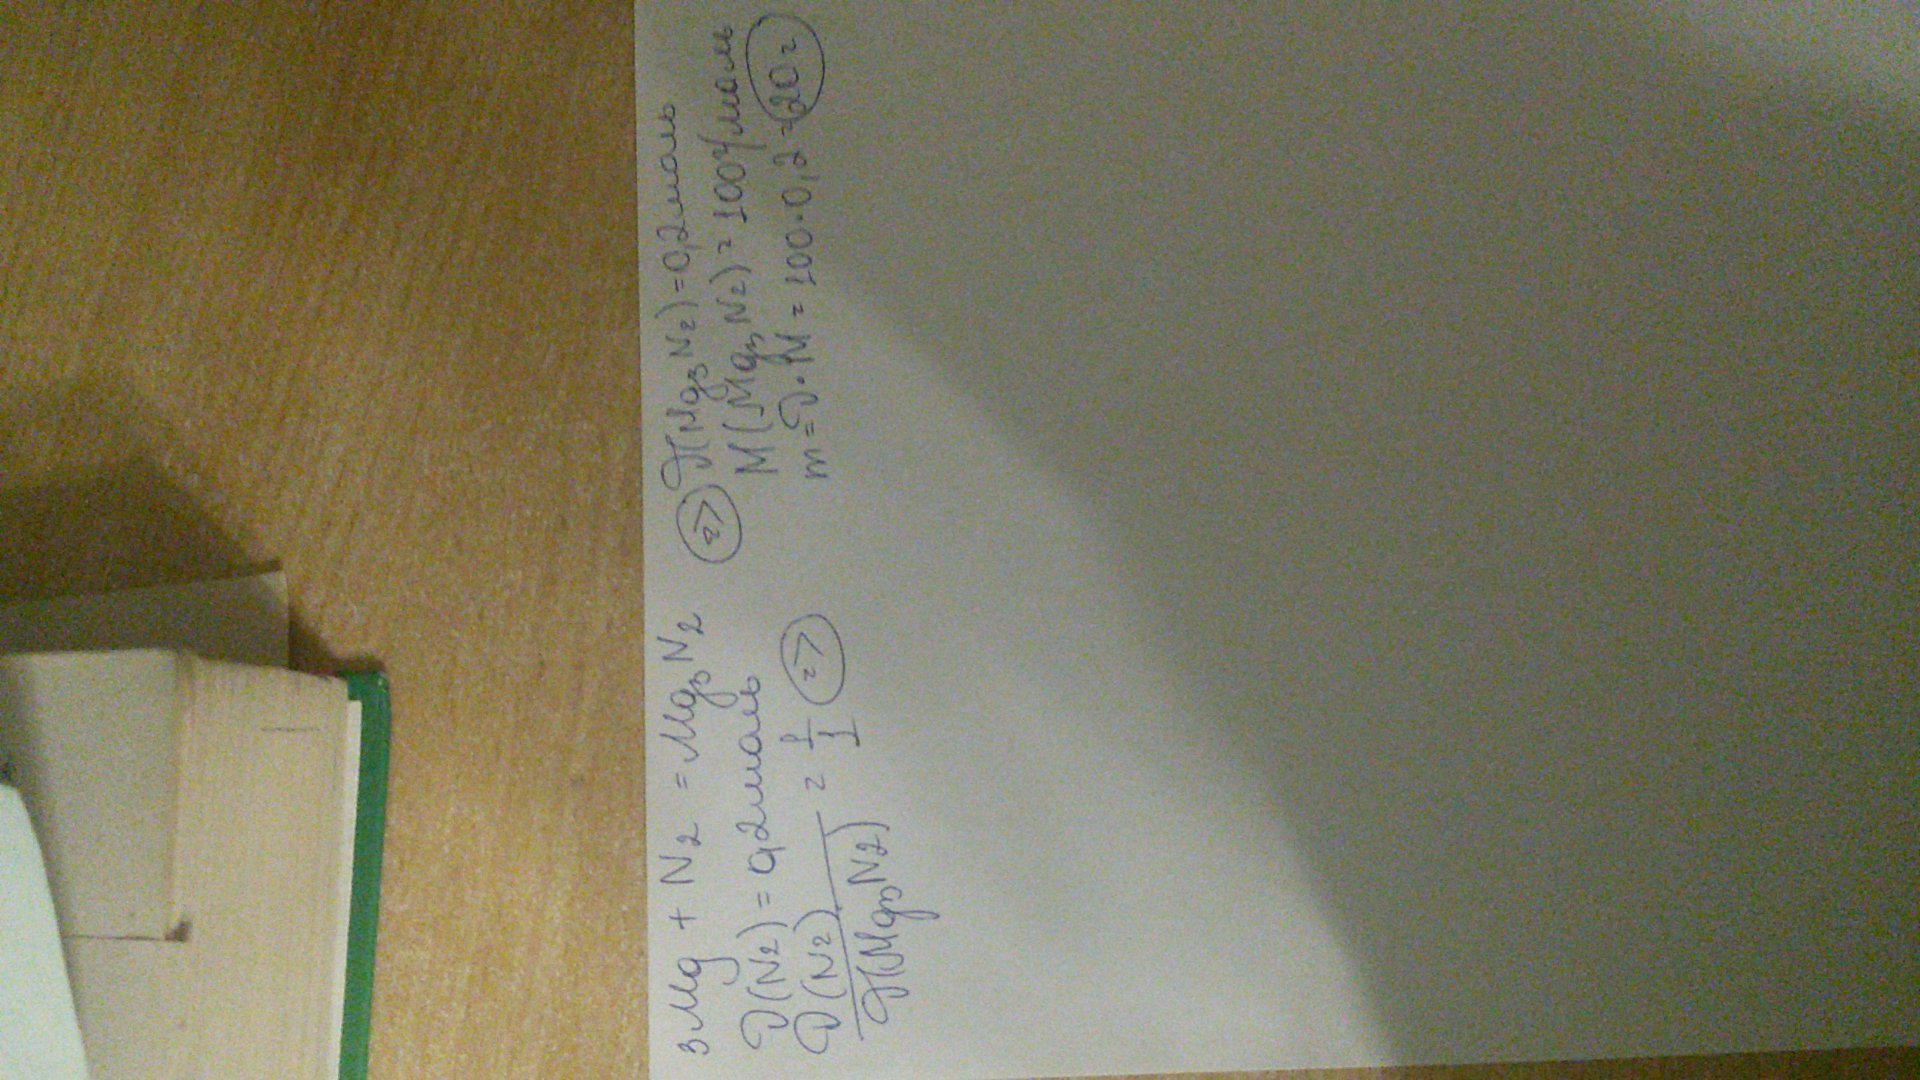 3Mg + N2 = Mg3N2
ν(N2) = 0,2моль
ν(N2) / ν(Mg3N2) = 1/1 =>
=> ν(Mg3N2) = 0,2моль
M(Mg3N2) = 100г/моль
m = ν · M = 100 · 0,2 = 20г